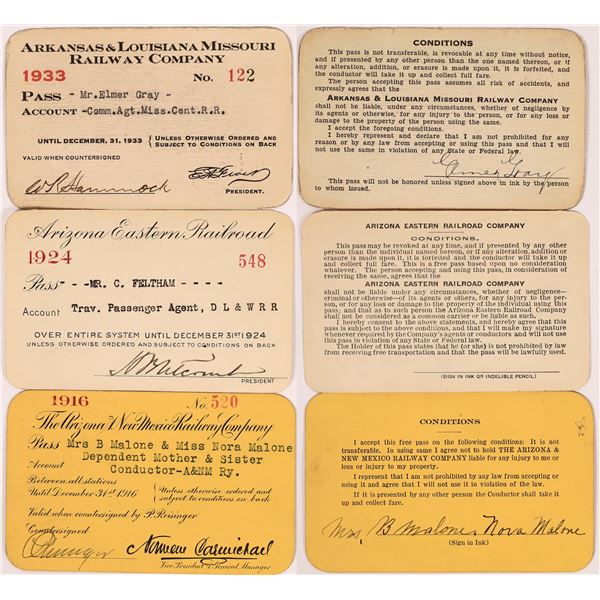 ARKANSAS & LOUISIANA MISSOURI
RAILWAY COMPANY
1933 No. 122
PASS - Mr. Elmer Gray -
ACCOUNT -Comm.Agt.Miss.Cent.R.R.
UNTIL DECEMBER, 31, 1933 { UNLESS OTHERWISE ORDERED AND
SUBJECT TO CONDITIONS ON BACK
VALID WHEN COUNTERSIGNED
PRESIDENT.
CONDITIONS
This pass is not transferable, is revocable at any time without notice,
and if presented by any other person than the one named thereon, or if
any alteration, addition, or erasure is made upon it, it is forfeited, and
the conductor will take it up and collect full fare.
The person accepting this pass assumes all risk of accidents, and
expressly agrees that the
ARKANSAS & LOUISIANA MISSOURI RAILWAY COMPANY
shall not be liable, under any circumstances, whether of negligence
by its agents or otherwise, for any injury to the person, or for any loss or
damage to the property of the person using the same.
I accept the foregoing conditions.
I hereby represent and declare that I am not prohibited for any
reason or by any law from accepting or using this pass and that I will
not use the same in violation of any State or Federal law.
Elmer Gray
This pass will not be honored unless signed above in ink by the person
to whom issued.
Arizona Eastern Railroad
1924 548
Pass - --MR. C. FELTHAM - - - -
Account Trav. Passenger Agent, D L & W RR
OVER ENTIRE SYSTEM UNTIL DECEMBER 31ST 1924
UNLESS OTHERWISE ORDERED AND SUBJECT TO CONDITIONS ON BACK
PRESIDENT
ARIZONA EASTERN RAILROAD COMPANY
CONDITIONS.
This pass may be revoked at any time, and if presented by any other
person than the individual named thereon, or if any alteration, addition
or erasure is made upon it, it is forfeited and the conductor will take it
up and collect full fare. This is a free pass based upon no consideration
whatever. The person accepting and using this pass, in consideration of
receiving the same, agrees that the
ARIZONA EASTERN RAILROAD COMPANY
shall not be liable under any circumstances, whether of negligence—
criminal or otherwise—of its agents or others, for any injury to the per-
son, or for any loss or damage to the property of the individual using this
pass; and that as to such person the Arizona Eastern Railroad Company
shall not be considered as a common carrier or be liable as such.
I hereby consent to the above statements, and hereby agree that this
pass is subject to the above conditions, and that I will make my signature
whenever required by the Company's agents or conductors and will not use
this pass in violation of any State or Federal law.
The Holder of this pass states that he (or she) is not prohibited by law
from receiving free transportation and that the pass will be lawfully used.
(SIGN IN INK OR INDELIBLE PENCIL)
1916 No. 520
The Arizona & New Mexico Railway Company
Pass Mrs B Malone & Miss Nora Malone
Dependent Mother & Sister
Account Conductor-A&NM Ry.
Between all stations
Until December 31st 1916 { Unless otherwise ordered and
subject to conditions on back
Valid when countersigned by P. Reisinger
Countersigned
P. Reisinger Norman Carmichael
Vice President & General Manager
CONDITIONS
I accept this free pass on the following conditions: It is not
transferable. In using same I agree not to hold THE ARIZONA &
NEW MEXICO RAILWAY COMPANY liable for any injury to me or
loss or injury to my property.
I represent that I am not prohibited by any law from accepting
and using it and agree that I will not use it in violation of the law.
If it is presented by any other person the Conductor shall take
it up and collect fare.
Mrs, B Malone, Nora Malone
(Sign in Ink)